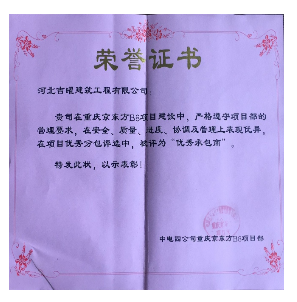 荣誉证书
河北吉曜建筑工程有限公司:
贵司在重庆京东方B8项目建设中，严格遵守项目部的
管理要求，在安全、质量、进度、协调及管理上表现优异，
在项目优秀分包评选中，被评为“优秀承包商”。
特发此状，以示表彰!
中电四公司重庆京东方B8项目部